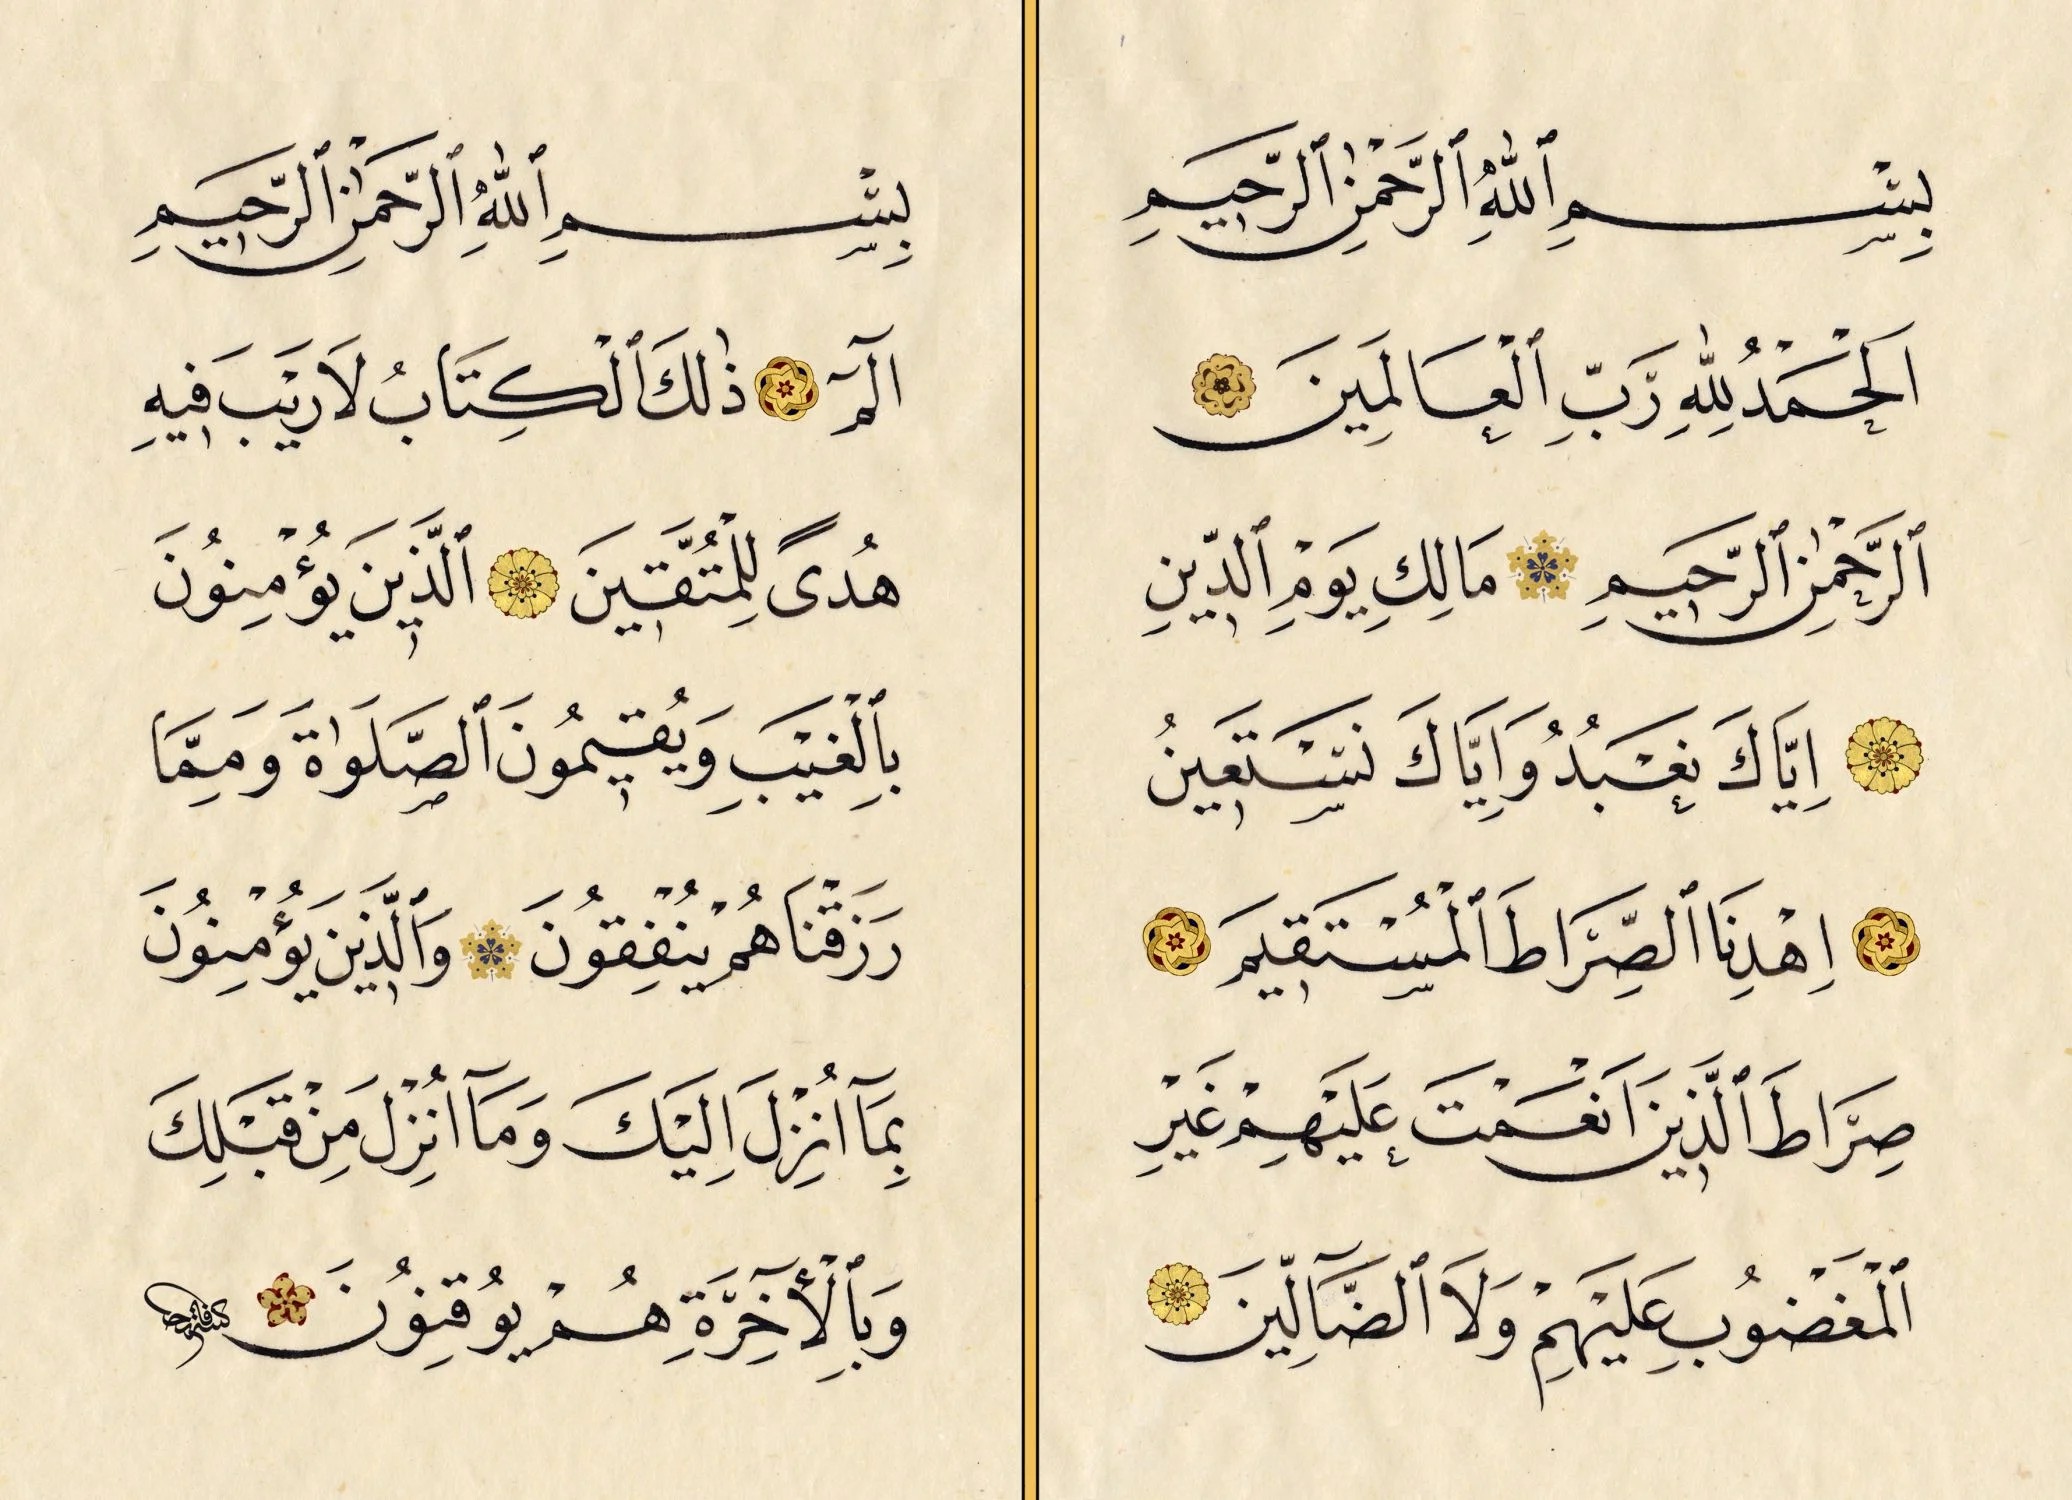 بِسْمِ ٱللّٰهِ ٱلرَّحْمٰنِ ٱلرَّحِيمِ
اَلْحَمْدُ لِلّٰهِ رَبِّ ٱلْعَالَمِينَ
ٱلرَّحْمٰنِ ٱلرَّحِيمِ مَالِكِ يَوْمِ ٱلدِّينِ
اِيَّاكَ نَعْبُدُ وَاِيَّاكَ نَسْتَعِينُ
اِهْدِنَا ٱلصِّرَاطَ ٱلْمُسْتَقِيمَ
صِرَاطَ ٱلَّذِينَ اَنْعَمْتَ عَلَيْهِمْ غَيْرِ
ٱلْمَغْضُوبِ عَلَيْهِمْ وَلَا ٱلضَّآلِّينَ
بِسْمِ ٱللّٰهِ ٱلرَّحْمٰنِ ٱلرَّحِيمِ
الٓمٓ ذٰلِكَ ٱلْكِتَابُ لَا رَيْبَ فِيهِ
هُدًى لِلْمُتَّقِينَ ٱلَّذِينَ يُؤْمِنُونَ
بِٱلْغَيْبِ وَيُقِيمُونَ ٱلصَّلَوٰةَ وَمِمَّا
رَزَقْنَاهُمْ يُنْفِقُونَ وَٱلَّذِينَ يُؤْمِنُونَ
بِمَآ اُنْزِلَ اِلَيْكَ وَمَآ اُنْزِلَ مِنْ قَبْلِكَ
وَبِٱلْأٓخِرَةِ هُمْ يُوقِنُونَ